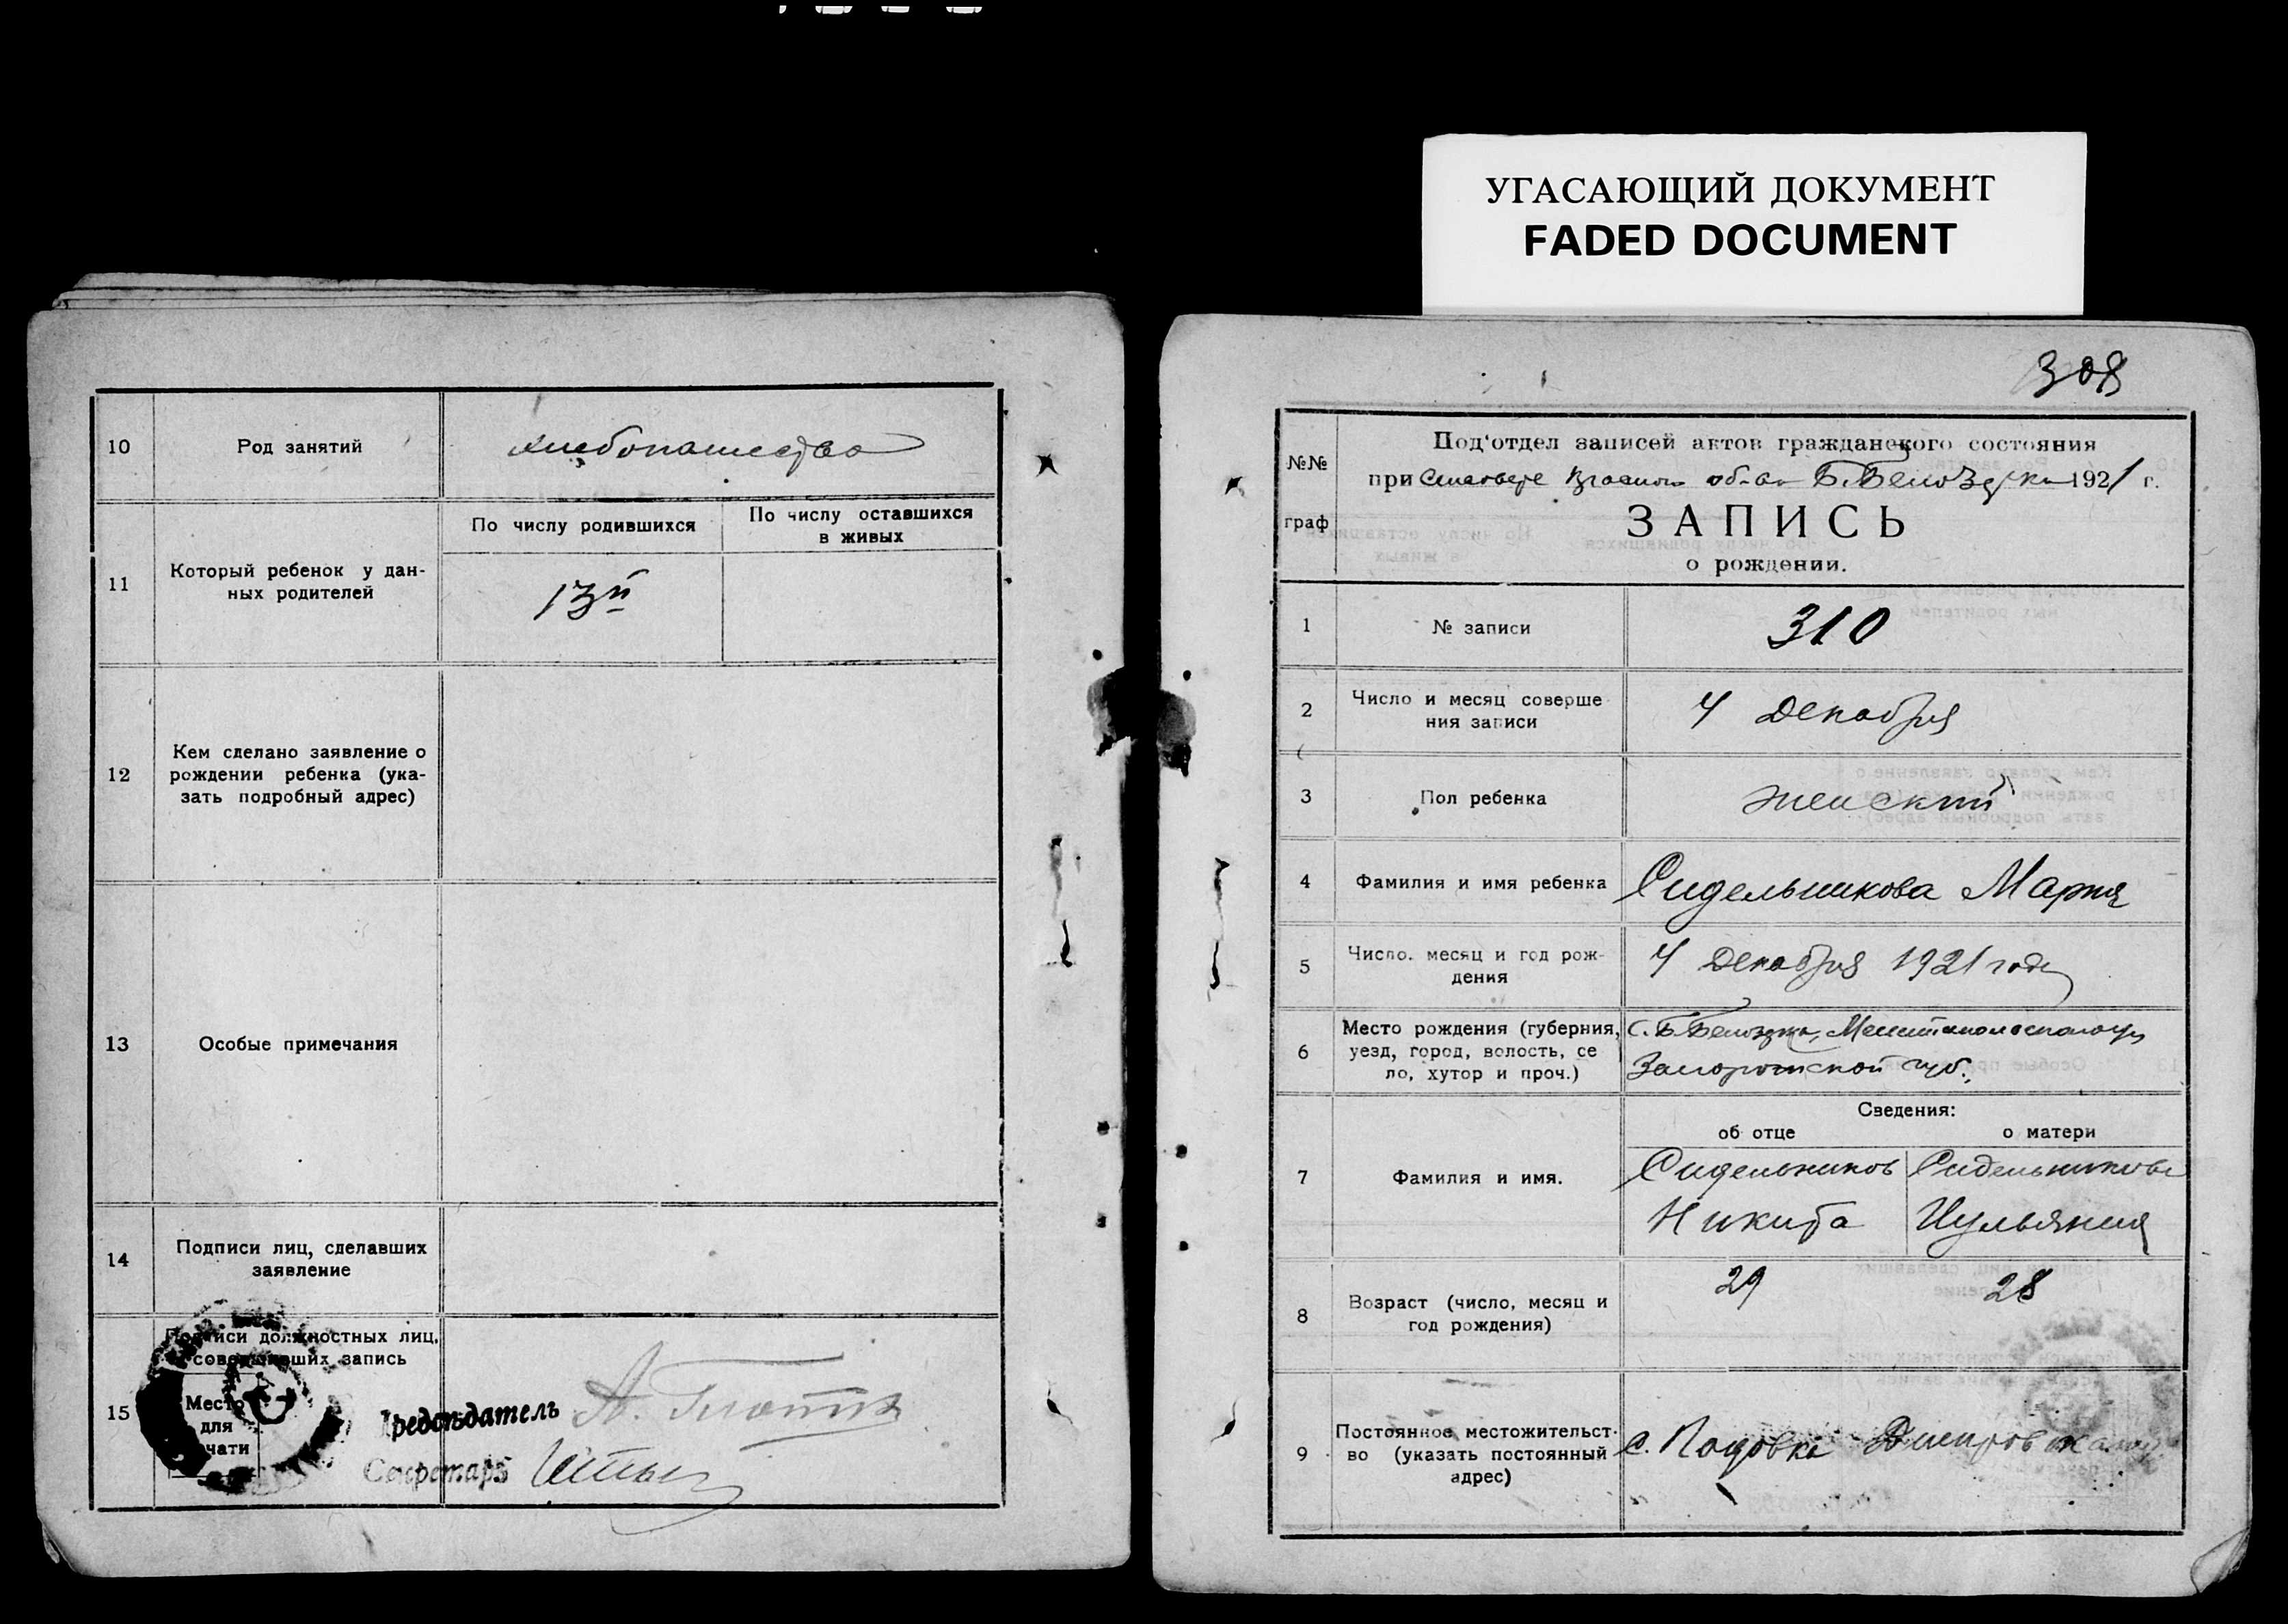 УГАСАЮЩИЙ ДОКУМЕНТ
FADED DOCUMENT
10
Род занятий
хлебопашество
11
Который ребенок у дан-
ных родителей
По числу родившихся
По числу оставшихся
в живых
13й
12
Кем сделано заявление о
рождении ребенка (ука-
зать подробный адрес)
13
Особые примечания
14
Подписи лиц, сделавших
заявление
15
Подписи должностных лиц,
совершивших запись
Место
для
печати
Председатель
Секретарь
308
№№
граф
Под'отдел записей актов гражданского состояния
при Б. Белозерки 1921 г.
ЗАПИСЬ
о рождении.
1
№ записи
310
2
Число и месяц соверше
ния записи
4 Декабря
3
Пол ребенка
женский
4
Фамилия и имя ребенка
Сидельникова Мария
5
Число. месяц и год рож-
дения
4 Декабря 1921 года
6
Место рождения (губерния,
уезд, город, волость, се
ло, хутор и проч.)
с. Б. Белозерка, Мелитопольского у
Запорожской губ.
Сведения:
об отце
о матери
7
Фамилия и имя.
Сидельников
Никита
Сидельникова
Иульяния
8
Возраст (число, месяц и
год рождения)
29
28
9
Постоянное местожительст-
во (указать постоянный
адрес)
с.